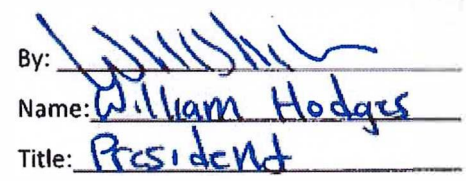 By:
Name: William Hodges
Title: President